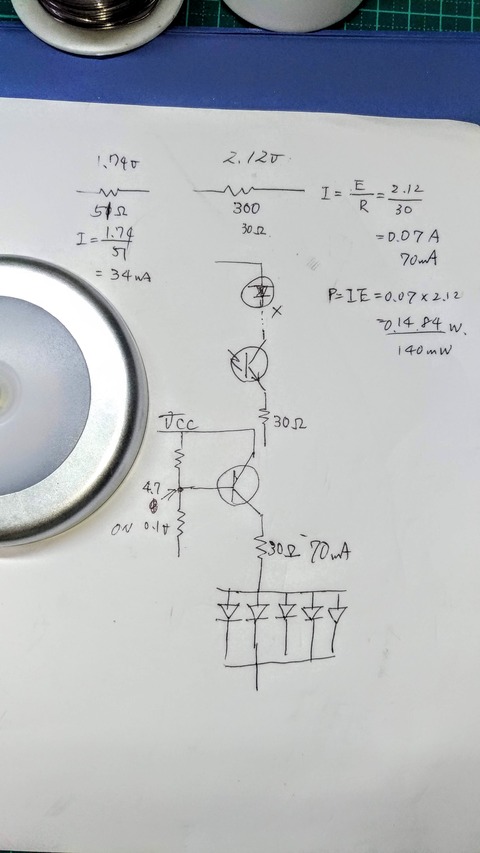 1.74v
51Ω
I = 1.74/51
= 34mA
2.12v
300
30Ω
I = E/R = 2.12/30
= 0.07A
70mA
P=IE=0.07×2.12
=0.14.84 W.
140mW
x
30Ω
VCC
4.7
ON 0.1v
30Ω 70mA